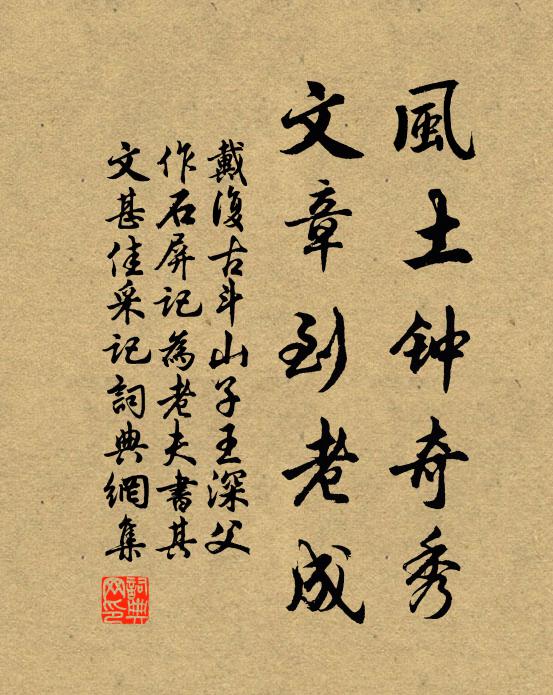 風土钟奇秀
文章到老成
戴復古斗山子王深父
作石屏记為老夫書其
文甚佳采记詞典網集
詞典網印